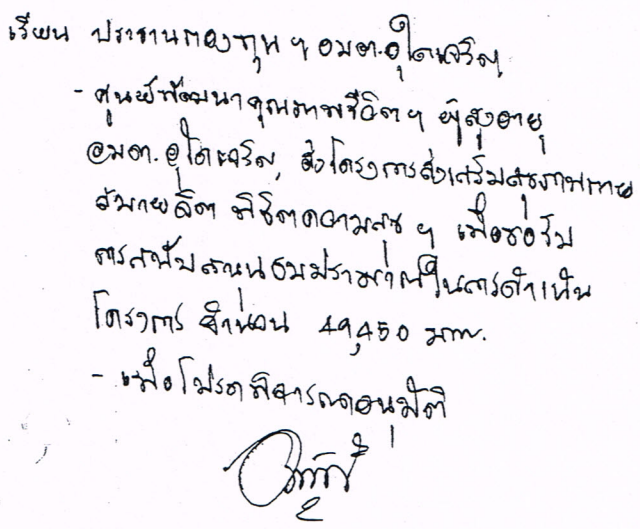 เรียน ประธานกองทุนฯ อบต.อุใดเจริญ
- ศูนย์พัฒนาคุณภาพชีวิตฯ ผู้สูงอายุ
อบต.อุใดเจริญ ส่งโครงการส่งเสริมสุขภาพกาย
สบายจิต พิชิตความสุขฯ เพื่อขอรับ
การสนับสนุนงบประมาณในการดำเนิน
โครงการ จำนวน 49,450 บาท.
- เพื่อโปรดพิจารณาอนุมัติ